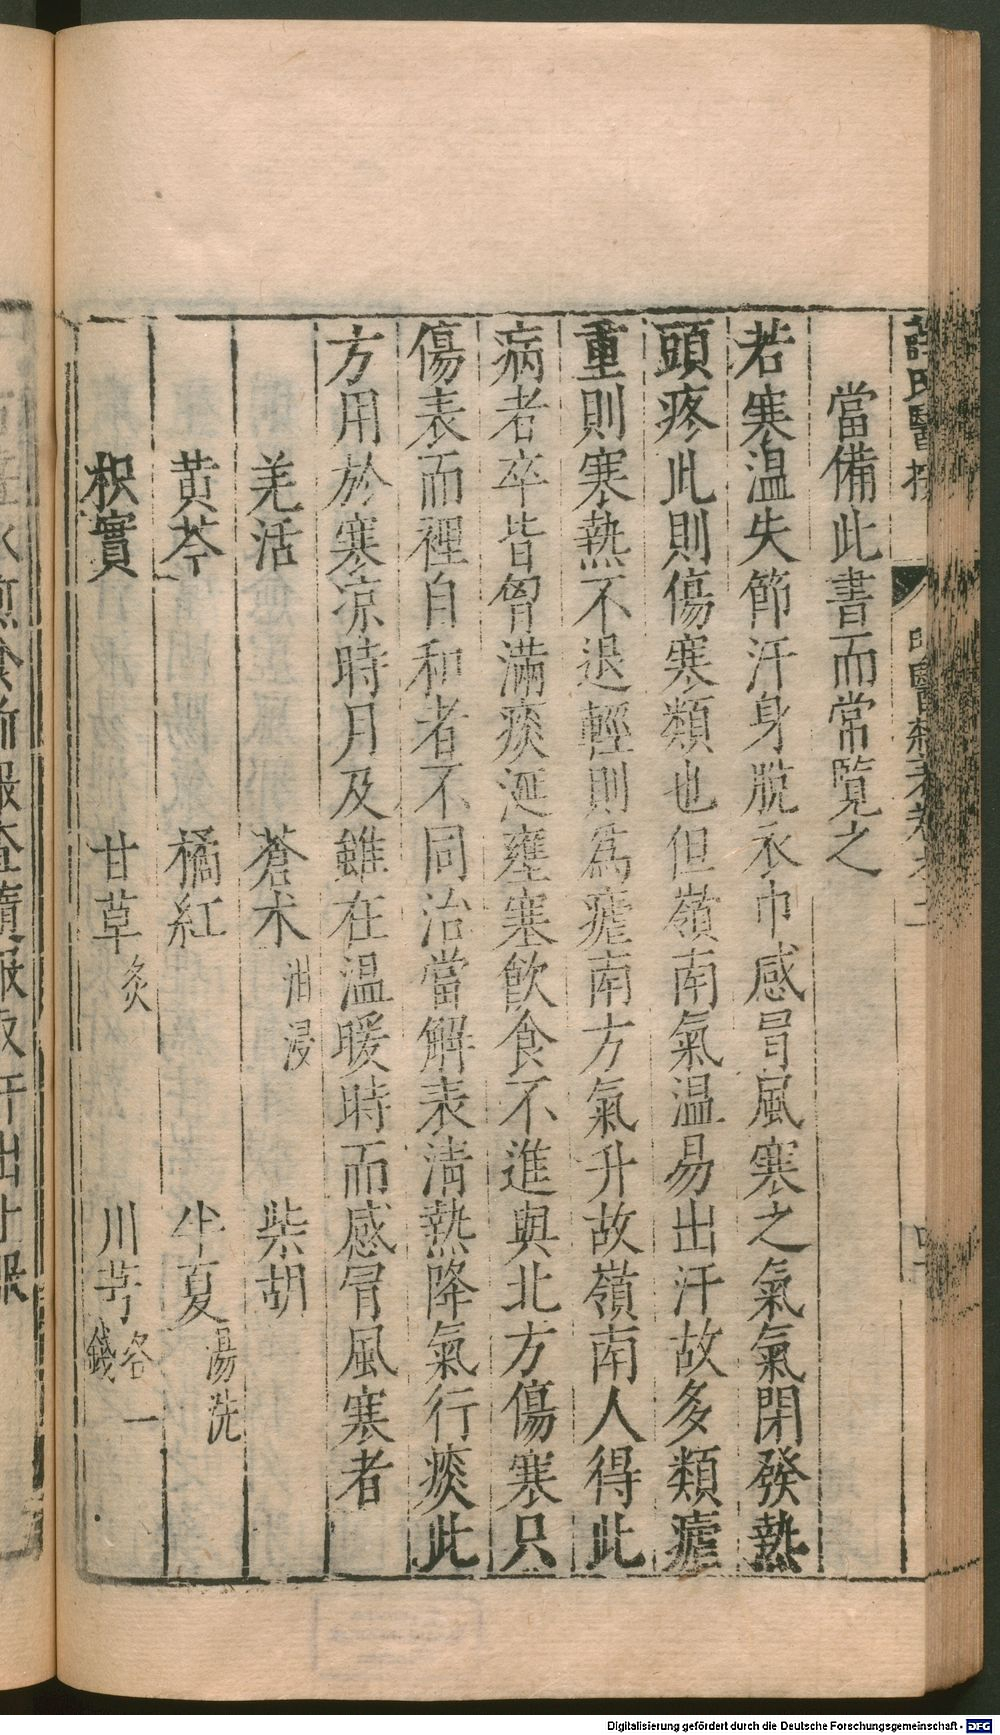 當備此書而常覽之
若寒温失節汗身脫衣巾感冒風寒之氣氣閉發熱
頭疼此則傷寒類也但嶺南氣温易出汗故多類瘧
重則寒熱不退輕則為瘧南方氣升故嶺南人得此
病者卒皆胷滿痰涎壅塞飲食不進與北方傷寒只
傷表而裡自和者不同治當解表清熱降氣行痰此
方用於寒凉時月及雖在温暖時而感冒風寒者
羌活 蒼术油浸 柴胡
黄芩 橘紅 半夏湯洗
枳實 甘草炙 川芎各一錢
Digitalisierung gefördert durch die Deutsche Forschungsgemeinschaft - DFG